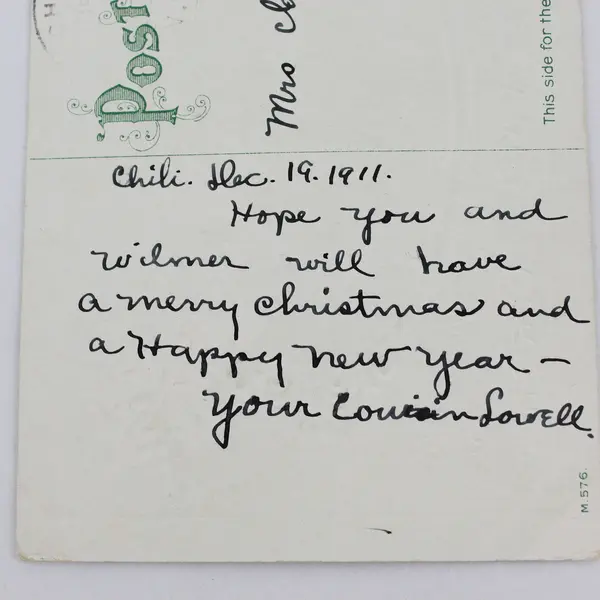 Post
Mrs
This side for the
Chili. Dec. 19. 1911.
Hope you and
Wilmer will have
a merry Christmas and
a Happy New Year –
Your Cousin Lowell.
M.576.